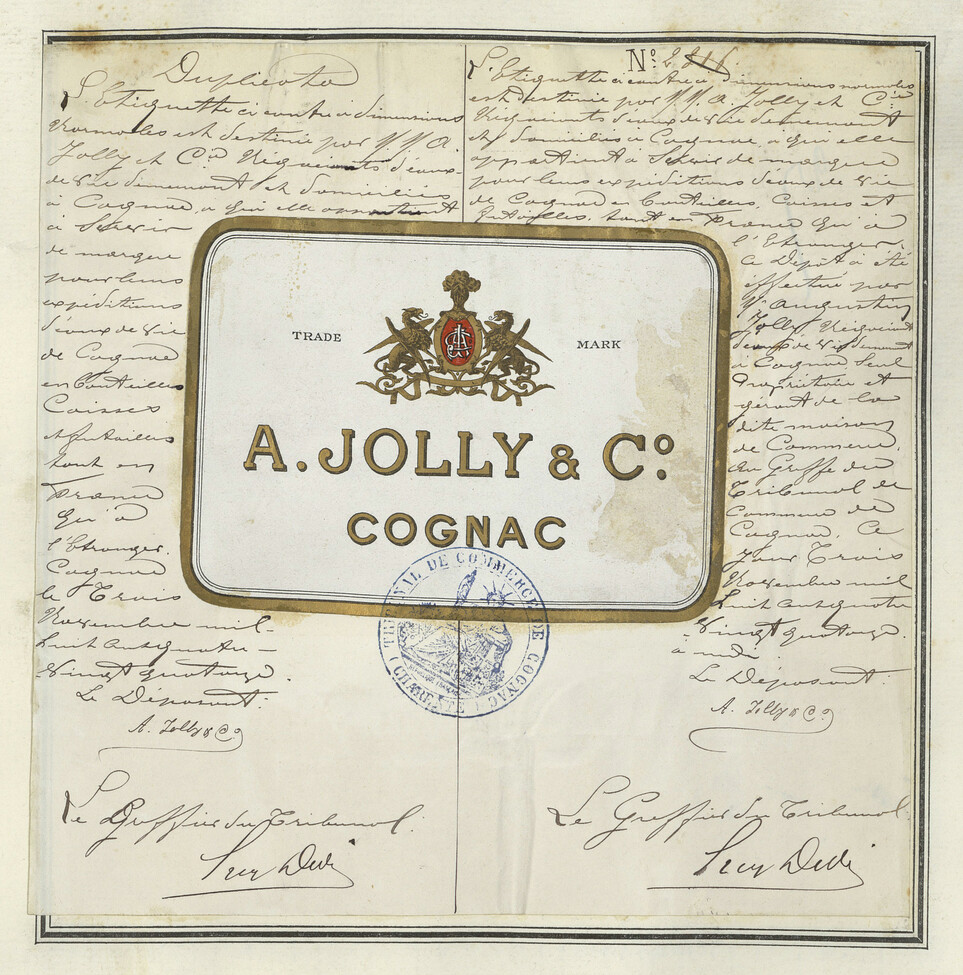 Duplicata
L'Etiquette ci contre à dimensions
normales est destinée par MM A.
Jolly et Cie Négociants d'eaux-
de vie demeurant et domiciliés
à Cognac, à qui elle appartient
à Servir
de marque
pour leurs
expéditions
d'eaux de vie
de Cognac
en bouteilles
Caisses
et futailles
tant en
France
qu'à
l'Etranger.
Cognac
le Trois
Novembre mil
huit cent quatre-
vingt quatorze.
Le Déposant.
A. Jolly & Co
Le Greffier du Tribunal.
No: 2
L'Etiquette ci contre à dimensions normales
est destinée par MM. A. Jolly et Cie
Négociants d'eaux de vie demeurant
et domiciliés à Cognac à qui elle
appartient à Servir de marque
pour leurs expéditions d'eaux de vie
de Cognac en bouteilles, Caisses et
futailles, tant en France qu'à
l'Etranger.
Ce Dépôt a été
effectué par
Mr Augustin
Jolly Négociant
d'eaux de vie demeurant
à Cognac Seul
Propriétaire et
gérant de la
dite maison
de Commerce
au Greffe du
Tribunal de
Commerce de
Cognac, Ce
jour Trois
Novembre mil
huit cent quatre
vingt quatorze.
à midi
Le Déposant.
A. Jolly & Co
Le Greffier du Tribunal
TRADE MARK
A. JOLLY & Co.
COGNAC
TRIBUNAL DE COMMERCE DE COGNAC
(CHARENTE)